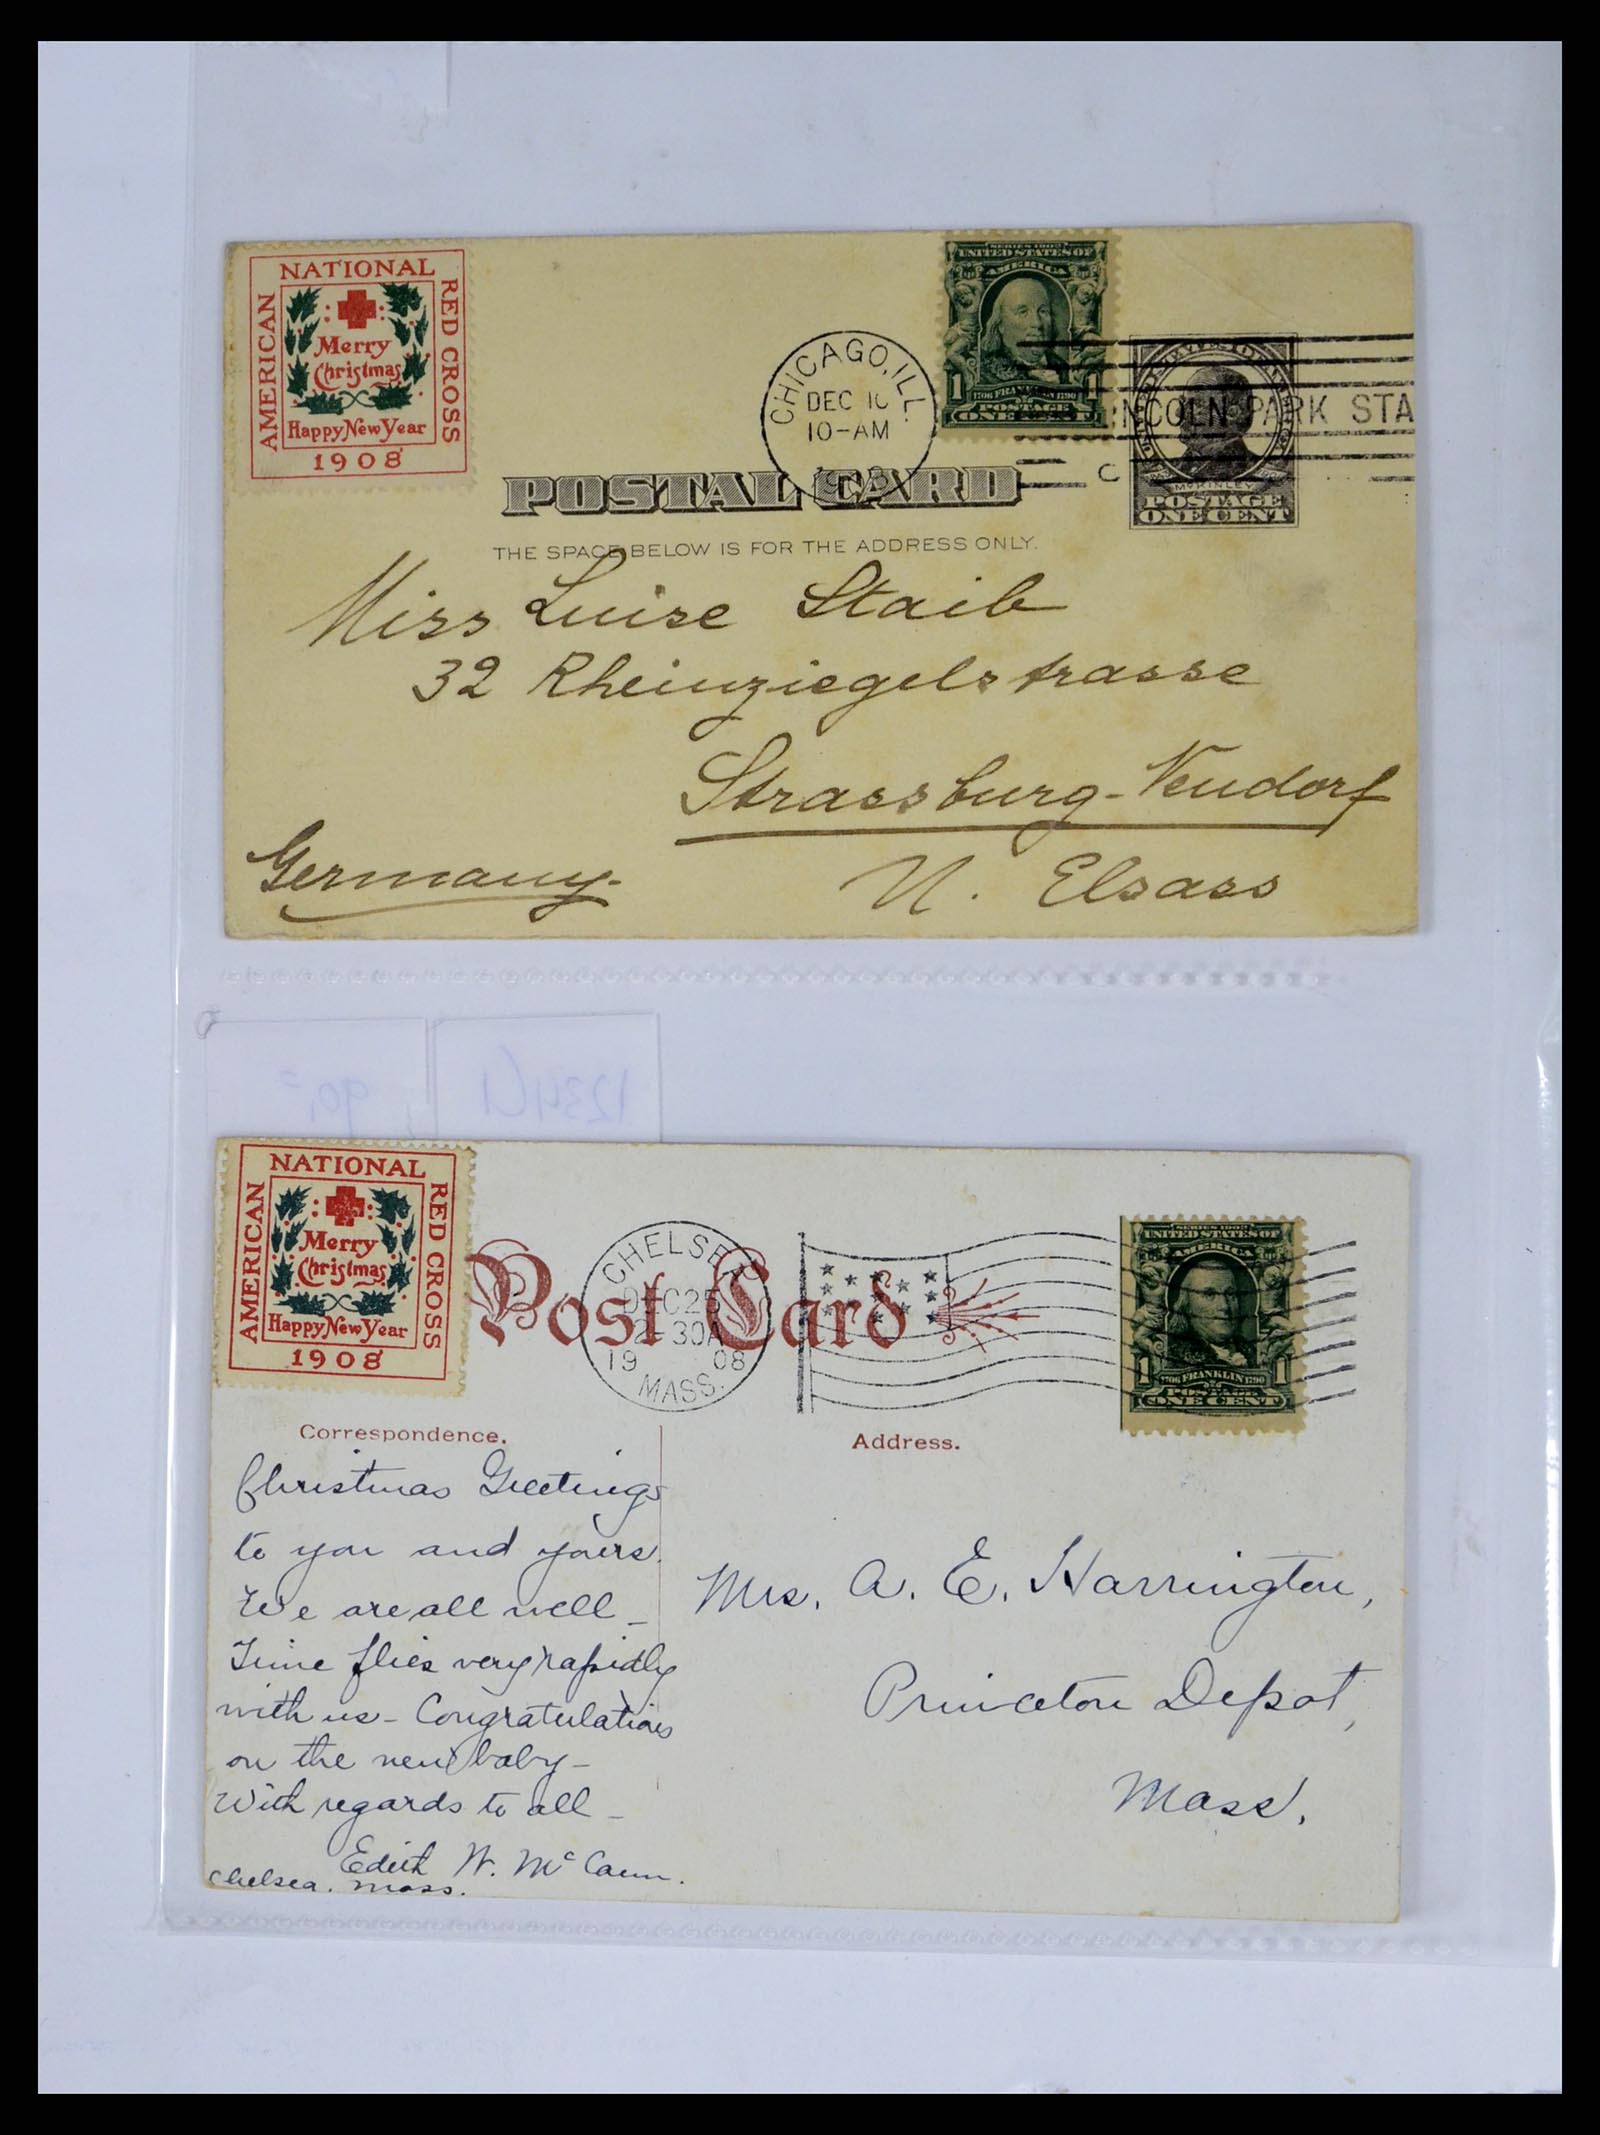 NATIONAL
AMERICAN
RED CROSS
Merry
Christmas
Happy New Year
1908
CHICAGO, ILL.
DEC 10
10-AM
SERIES 1902
UNITED STATES OF
AMERICA
1 1
1706 FRANKLIN 1790
POSTAGE
ONE CENT
NCOLN PARK STA
C
McKINLEY
POSTAGE
ONE CENT
POSTAL CARD
THE SPACE BELOW IS FOR THE ADDRESS ONLY.
Miss Luise Staib
32 Rheinziegelstrasse
Strassburg-Neudorf
Germany.
U. Elsass
1234
90,=
NATIONAL
AMERICAN
RED CROSS
Merry
Christmas
Happy New Year
1908
Post Card
CHELSEA
DEC 25
2-30A
19 08
MASS.
SERIES 1902
UNITED STATES OF
AMERICA
1 1
1706 FRANKLIN 1790
POSTAGE
ONE CENT
Correspondence.
Address.
Christmas Greetings
to you and yours.
We are all well –
Time flies very rapidly
with us – Congratulations
on the new baby –
With regards to all –
Edith W. McCann.
Chelsea. Mass.
Mrs. A. E. Harrington,
Princeton Depot,
Mass.